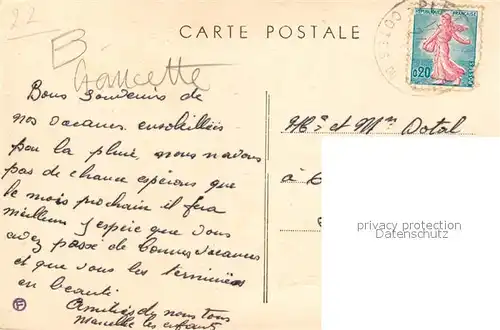 22
CARTE POSTALE
B
Francette
RÉPUBLIQUE FRANÇAISE
0,20
POSTES
Bons souvenirs de
nos vacances ensoleillées
par la pluie, nous n'avons
pas de chance espérons que
le mois prochain il fera
meilleur j'espère que vous
avez passé de bonnes vacances
et que vous les terminiez
en beauté.
Amitiés de nous tous
Marcelle les enfants
Mr et Mme Dotal
à
privacy protection
Datenschutz